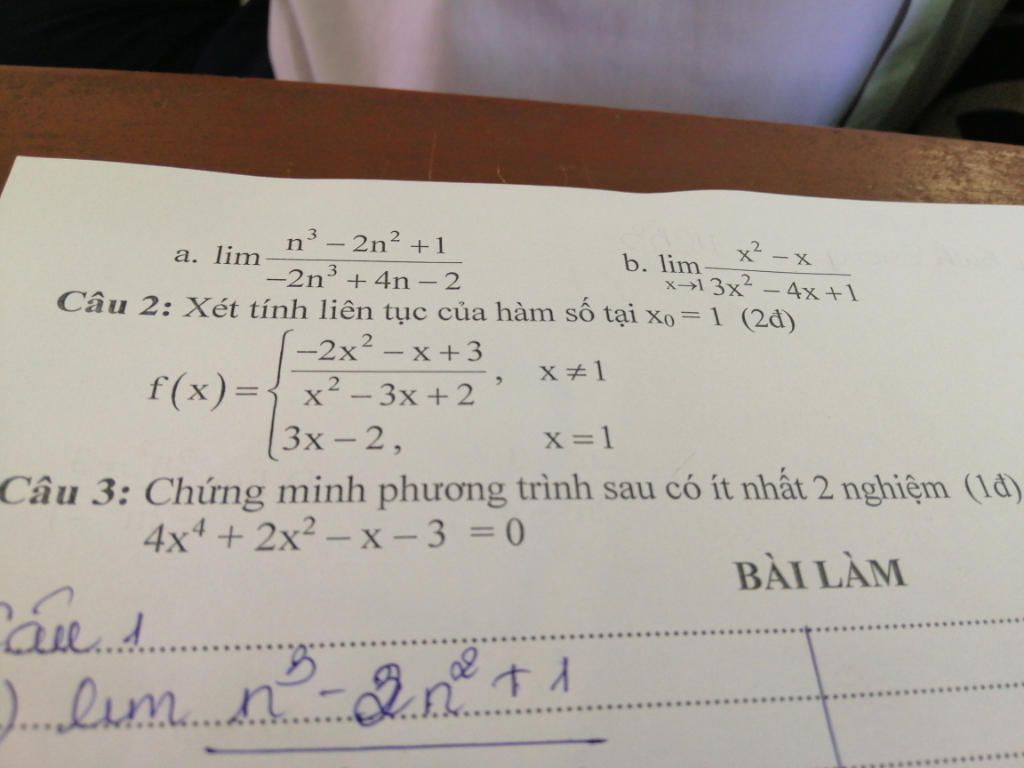 a. lim (n³ − 2n² + 1)/(−2n³ + 4n − 2)    b. lim x→1 (x² − x)/(3x² − 4x + 1)
Câu 2: Xét tính liên tục của hàm số tại x₀ = 1 (2đ)
f(x) = { (−2x² − x + 3)/(x² − 3x + 2), x ≠ 1
3x − 2, x = 1
Câu 3: Chứng minh phương trình sau có ít nhất 2 nghiệm (1đ)
4x⁴ + 2x² − x − 3 = 0
BÀI LÀM
Câu 1
) lim n³ − 2n² + 1